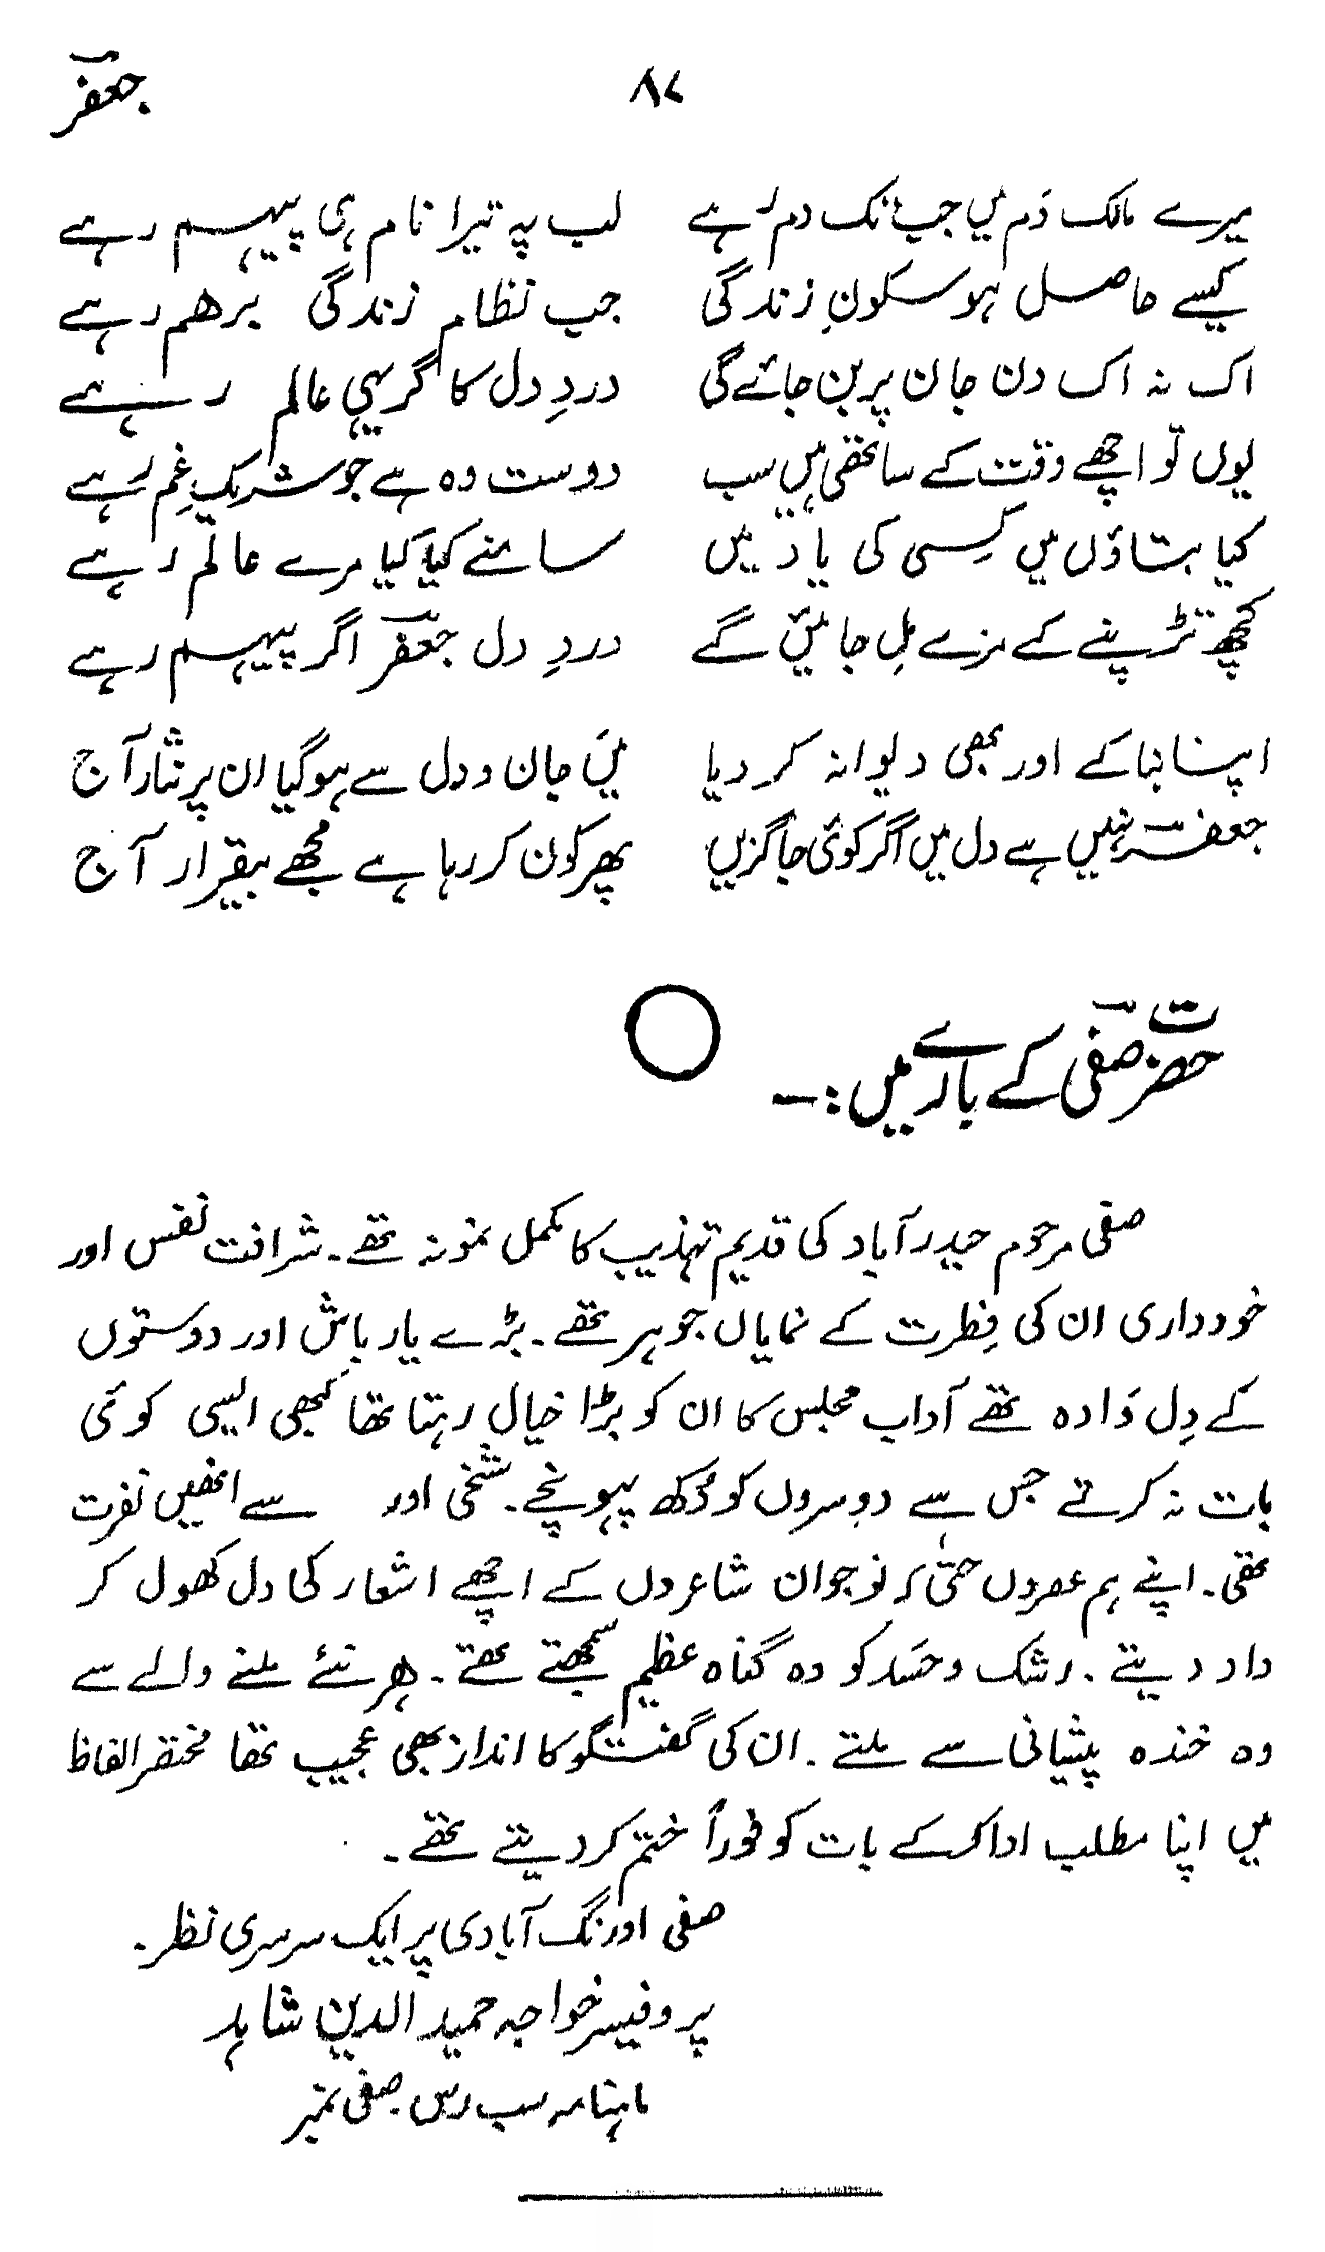 ۸۷ جعفرؔ
میرے مالک دَم میں جب تک دم رہے لب پہ تیرا نام ہی پیہم رہے
کیسے حاصل ہو سکونِ زندگی جب نظام زندگی برھم رہے
اک نہ اک دن جان پر بن جائے گی دردِ دل کا گر یہی عالم رہے
یوں تو اچھے وقت کے ساتھی ہیں سب دوست وہ ہے جو شریکِ غم رہے
کیا بتاؤں میں کِسی کی یاد میں سامنے کیا کیا مرے عالم رہے
کچھ تڑپنے کے مزے مِل جائیں گے دردِ دل جعفرؔ اگر پیہم رہے
اپنا بنا کے اور بھی دیوانہ کر دیا میں جان و دل سے ہو گیا ان پر نثار آج
جعفرؔ نہیں ہے دل میں اگر کوئی جاگزیں پھر کون کر رہا ہے مجھے بیقرار آج
حضرت صفیؔ کے بارے میں :۔
صفی مرحوم حیدرآباد کی قدیم تہذیب کا مکمل نمونہ تھے۔ شرافت نفس اور
خودداری ان کی فِطرت کے نمایاں جوہر تھے۔ بڑے یار باش اور دوستوں
کے دِل دَادہ تھے آداب مجلس کا ان کو بڑا خیال رہتا تھا کبھی ایسی کوئی
بات نہ کرتے جس سے دوسروں کو دُکھ پہونچے۔ شیخی اور سے انھیں نفرت
تھی۔ اپنے ہم عصروں حتیٰ کہ نوجوان شاعروں کے اچھے اشعار کی دل کھول کر
داد دیتے۔ رشک و حَسد کو وہ گناہ عظیم سمجھتے تھے۔ ھر نئے ملنے والے سے
وہ خندہ پیشانی سے ملتے۔ ان کی گفتگو کا انداز بھی عجیب تھا مختصر الفاظ
میں اپنا مطلب ادا کر کے بات کو فوراً ختم کر دیتے تھے۔
صفی اورنگ آبادی پر ایک سرسری نظر۔
پروفیسر خواجہ حمید الدین شاہد
ماہنامہ سب رس۔ صفی نمبر